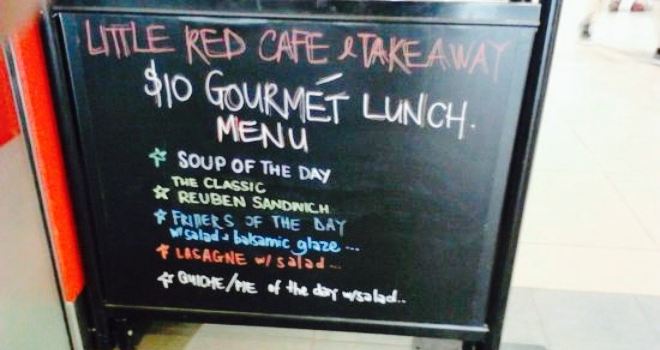 LITTLE RED CAFE & TAKEAWAY
$10 GOURMÉT LUNCH.
MENU
☆ SOUP OF THE DAY
THE CLASSIC
☆ REUBEN SANDWICH
☆ OF THE DAY
w/ salad & balsamic glaze ...
☆ LASAGNE w/ salad ...
☆ of the day w/salad..